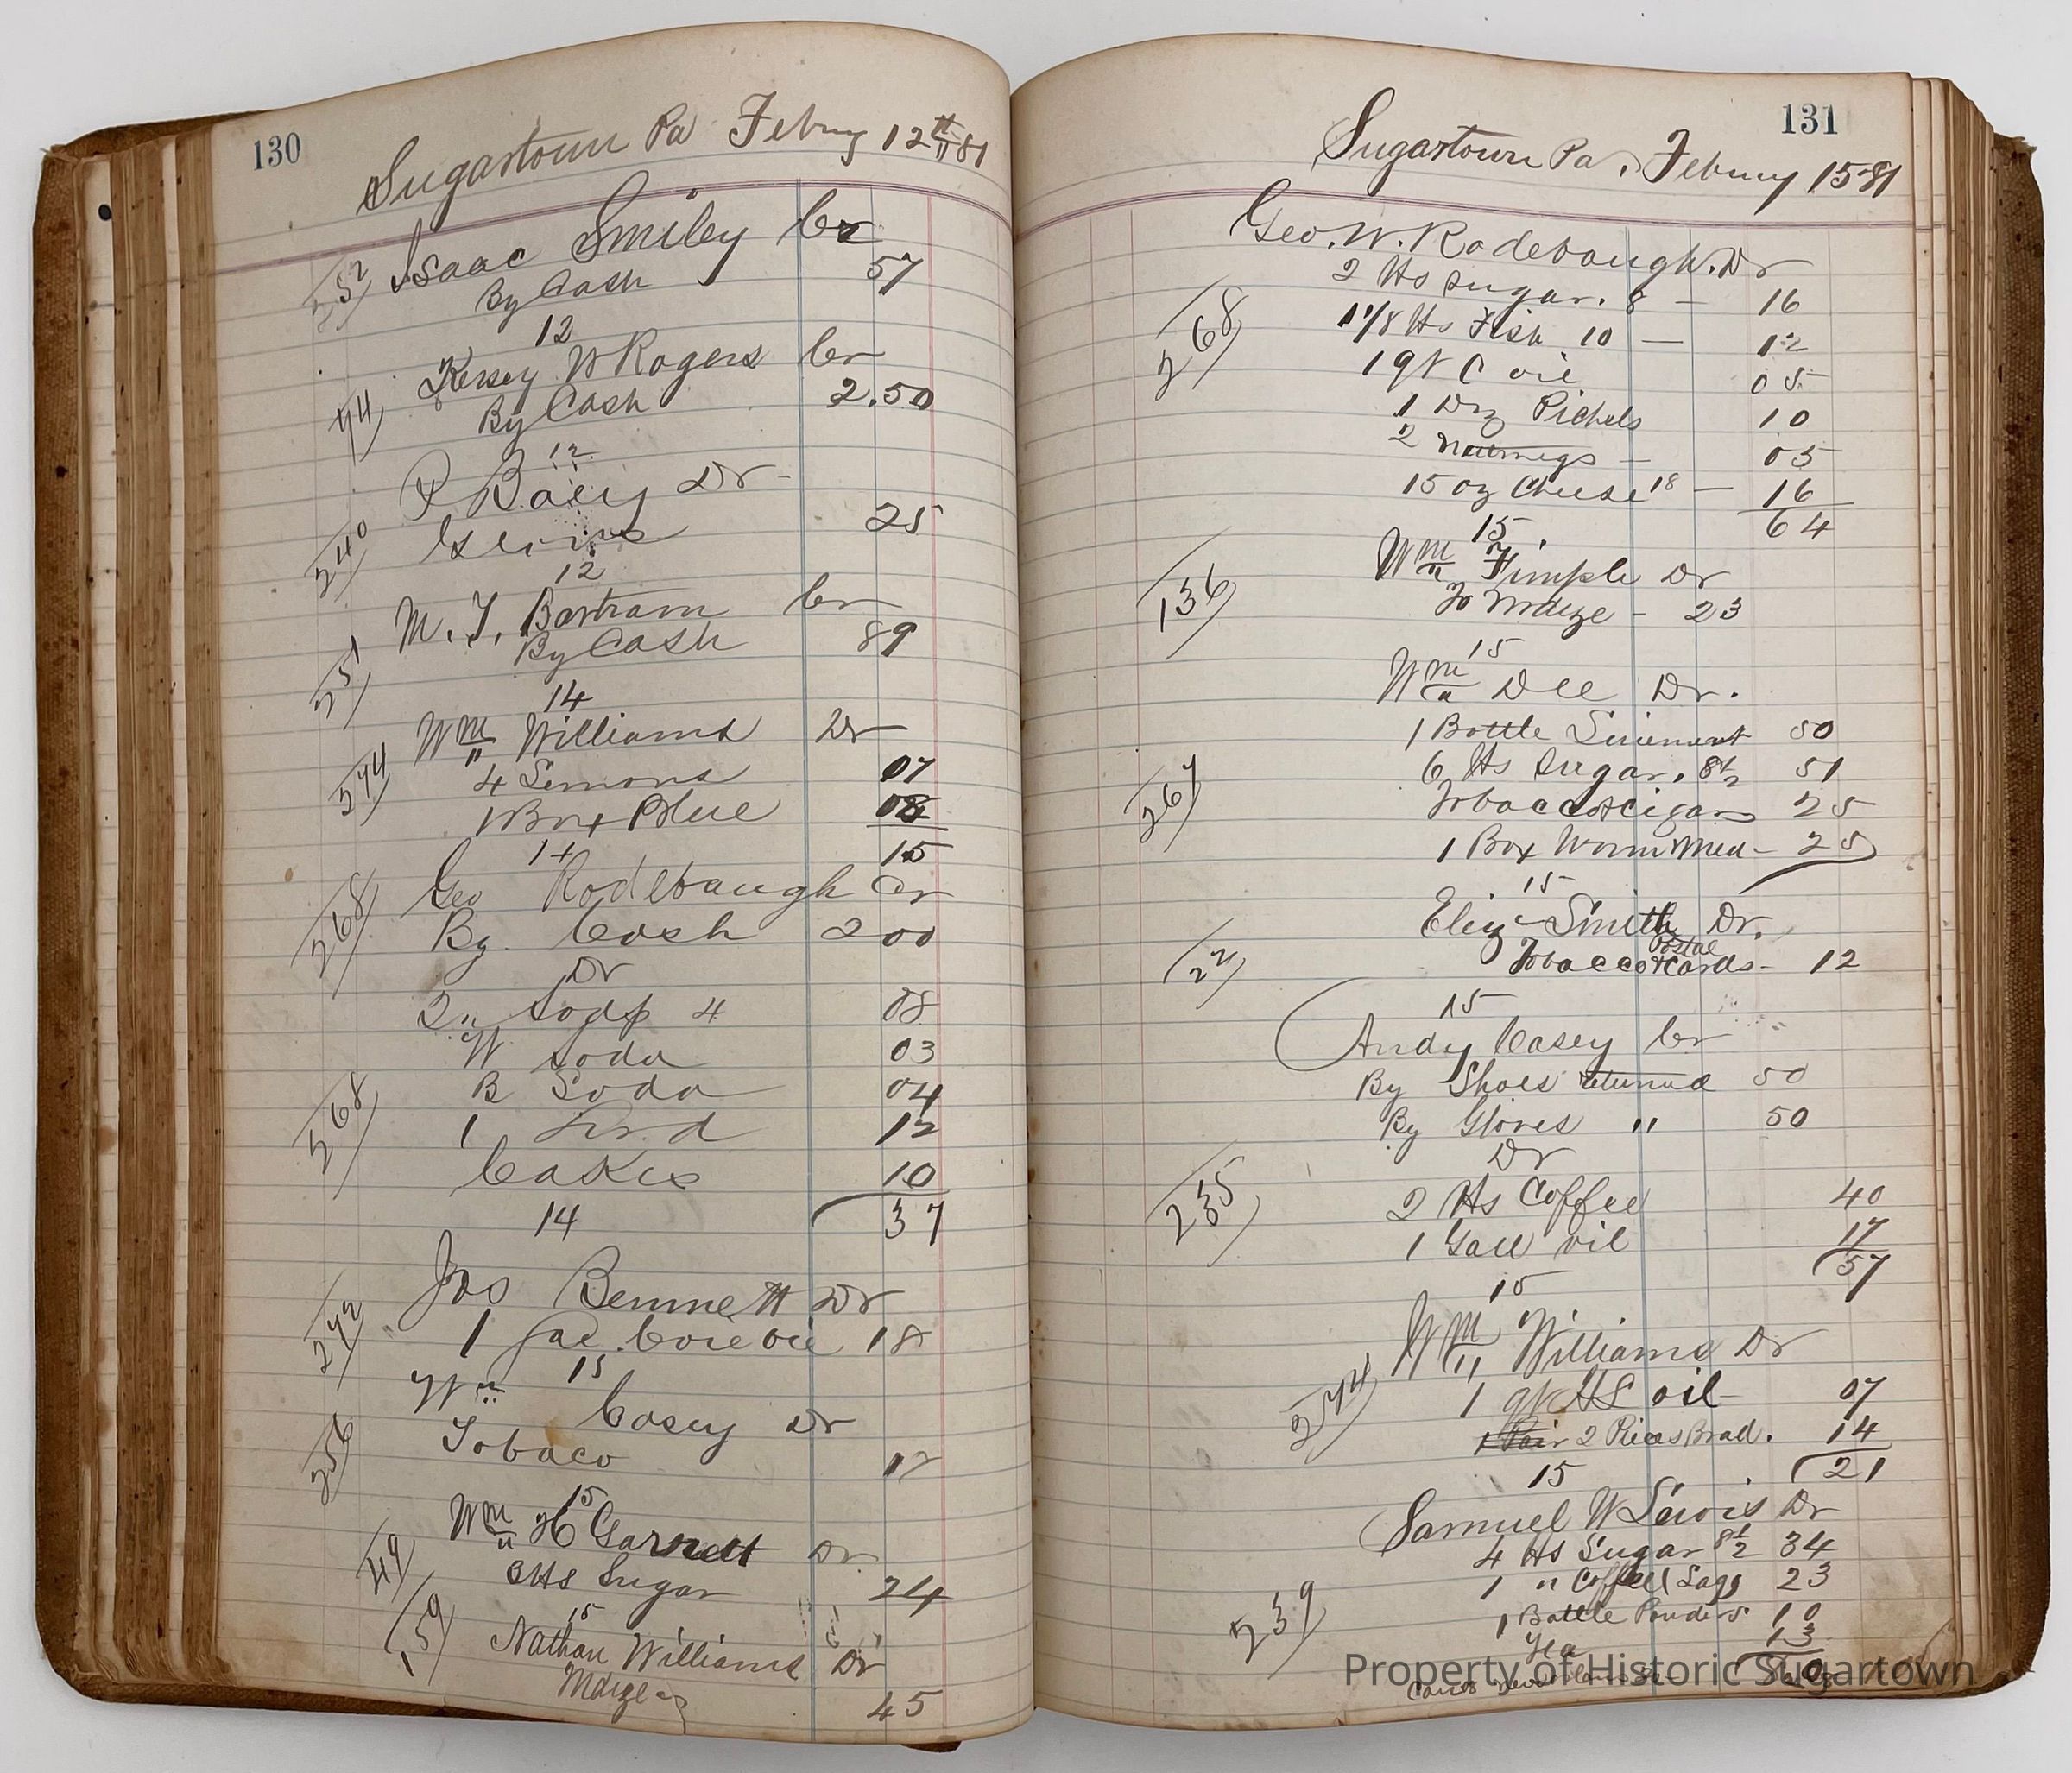 130
Sugartown Pa Februy 12th 81
252 Isaac Smiley Cr
By Cash 57
12
74 Kersey W Rogers Cr
By Cash 2.50
12
240 P Baily Dr
Gloves 25
12
251 M. T. Bartram Cr
By Cash 89
14
274 Wm Williams Dr
4 Lemons 07
1 Box Blue 08
15
14
268 Geo Rodebaugh Cr
By Cash 2 00
Dr
2 " Soap 4 08
W Soda 03
268 B Soda 04
1 Lard 12
Cakes 10
37
14
272 Jos Bennett Dr
1 Gal. Coal oil 18
15
256 Wm Casey Dr
Tobaco 12
15
49 Wm H Garrett Dr
3 lbs Sugar 24
15
159 Nathan Williams Dr
Maize 45
131
Sugartown Pa, Februy 15 81
Geo. W. Rodebaugh. Dr
2 lbs Sugar. 8 — 16
268 1 1/8 lbs Fish 10 — 12
1 qt C oil 05
1 Doz Pickels 10
2 Nutmegs — 05
15 oz Cheese 18 — 16
64
15
136 Wm Fimple Dr
To Maize - 23
15
Wm Dee Dr.
1 Bottle Liniment 50
267 6 lbs Sugar. 8 1/2 51
Tobacco & Cigars 25
1 Box Worm Med - 25
15
Eliz Smith Dr.
22 Tobacco & Postal Cards - 12
15
Andy Casey Cr
By Shoes returned 50
By Gloves " 50
Dr
235 2 lbs Coffee 40
1 Gall oil 17
57
15
Wm Williams Dr
274 1 qt HL oil 07
1 Pair 2 Pieces Braid. 14
21
15
Samuel W Lewis Dr
4 lbs Sugar 8 1/2 34
1 " Coffee 23
239 1 Bottle Powders 10
Tea 13
Property of Historic Sugartown